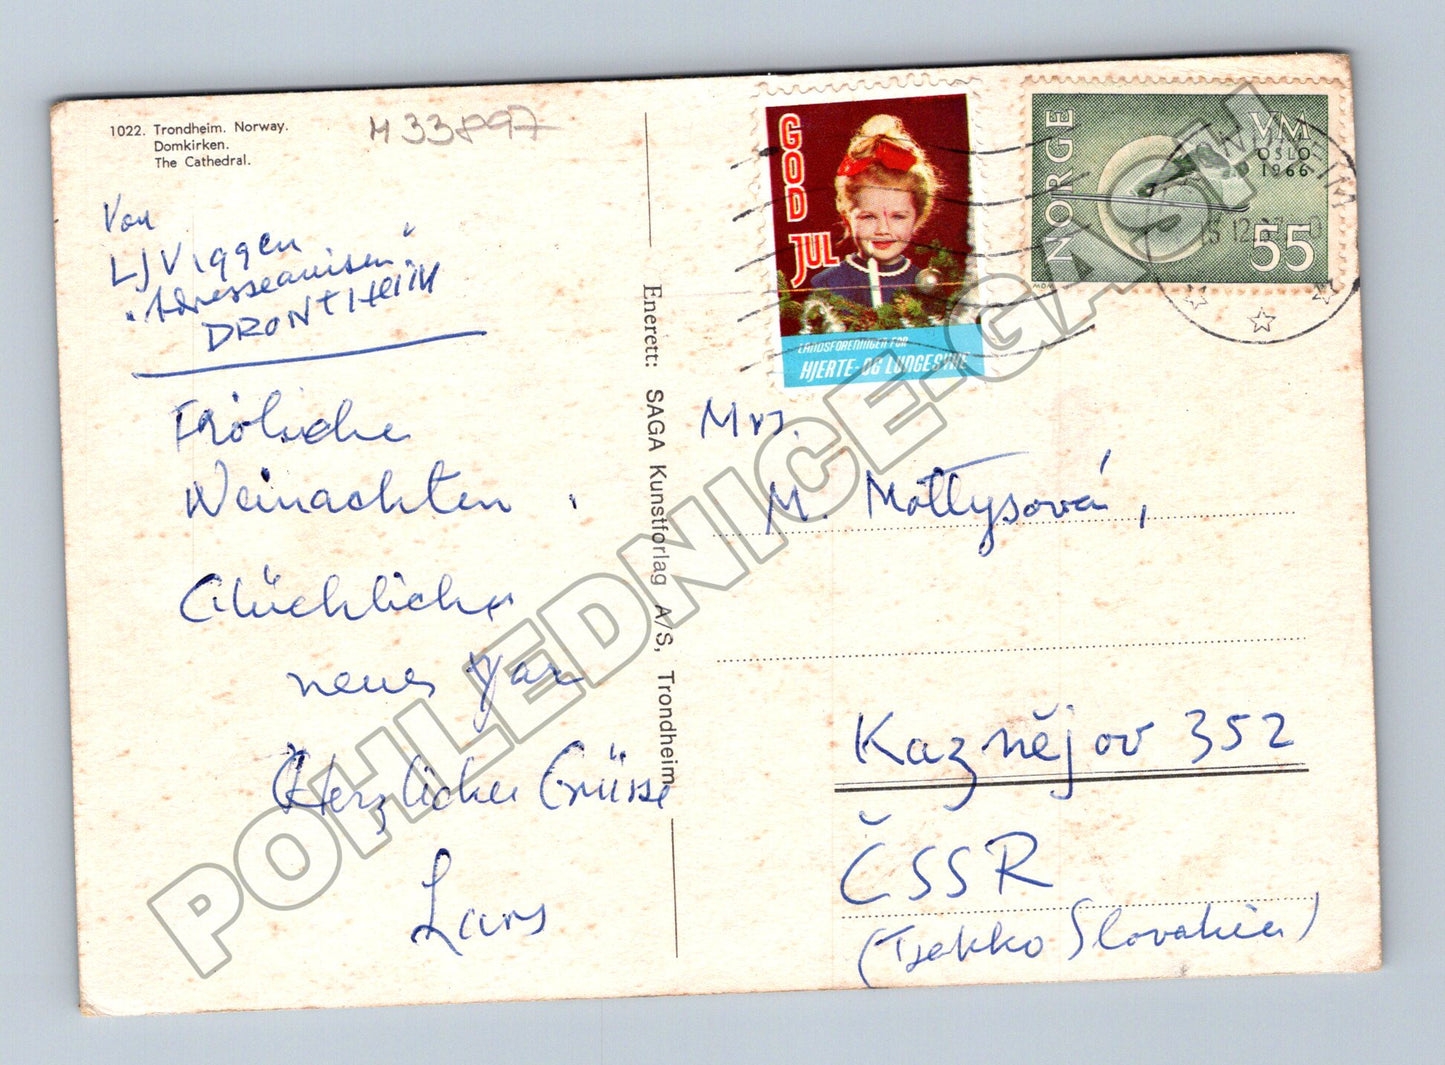 1022. Trondheim. Norway.
Domkirken.
The Cathedral.
M33897
Von
LJ Viggen
"Adresseavisen"
DRONTHEIM
Fröliche
Weinachten,
Glückliches
neues Jar
Herzlicher Grüsse
Lars
Enerett: SAGA Kunstforlag A/S, Trondheim
GOD
JUL
LANDSFORENINGEN FOR
HJERTE- OG LUNGESYKE
NORGE
VM
OSLO
1966
55
Mrs.
M. Mottysová,
Kaznějov 352
ČSSR
(Tsekko Slovakia)
POHLEDNICE-GASI